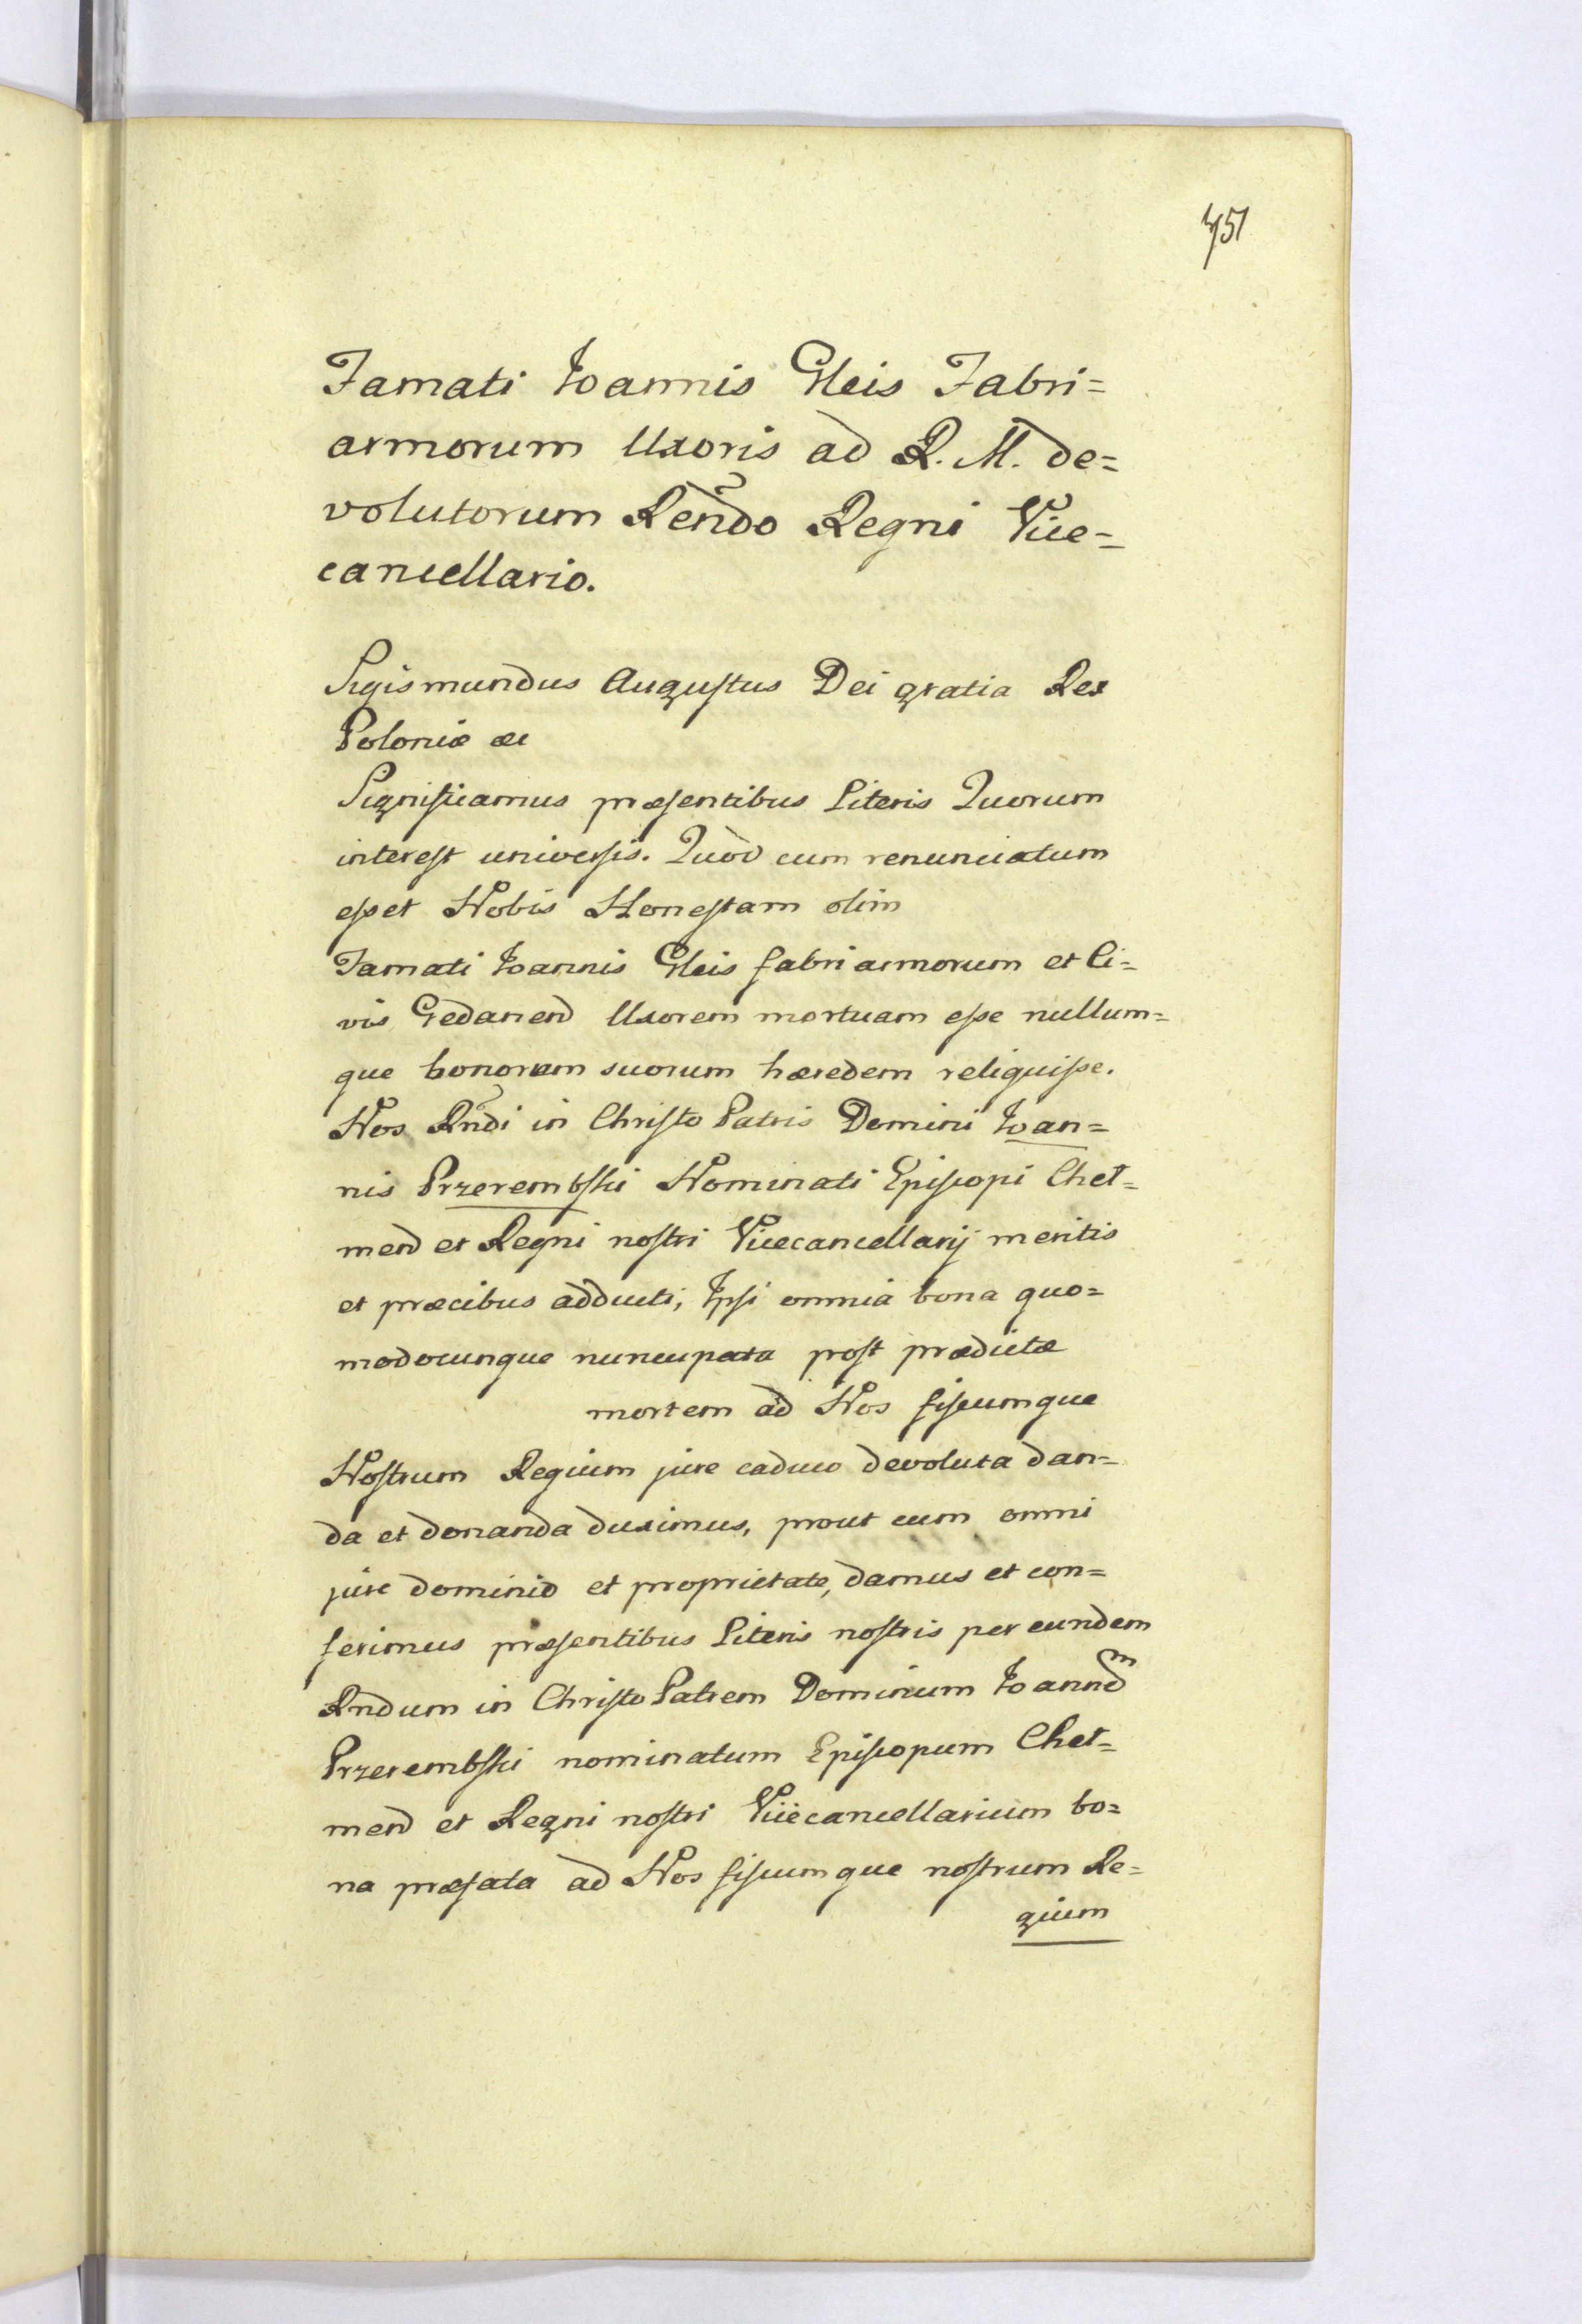 751
Famati Ioannis Gleis Fabri=
armorum Uxoris ad R. M. de=
volutorum Rendo Regni Vice=
cancellario.
Sigismundus Augustus Dei gratia Rex
Poloniæ æc
Significamus præsentibus Literis Quorum
interest universis. Quòd cum renunciatum
esset Nobis Honestam olim
Famati Ioannis Gleis fabri armorum et Ci=
vis Gedanen Uxorem mortuam esse nullum=
que bonorum suorum hæredem reliquisse.
Nos Rndi in Christo Patris Domini Ioan=
nis Przerembski Nominati Episcopi Cheł=
men et Regni nostri Vicecancellarij meritis
et præcibus adducti, Ipsi omnia bona quo=
modocunque nuncupata post prædictæ
mortem ad Nos fiscumque
Nostrum Regium jure caduco devoluta dan=
da et donanda duximus, prout cum omni
jure dominio et proprietate, damus et con=
ferimus præsentibus Literis nostris per eundem
Rndum in Christo Patrem Dominum Ioannem
Przerembski nominatum Episcopum Cheł=
men et Regni nostri Vicecancellarium bo=
na præfata ad Nos fiscumque nostrum Re=
gium